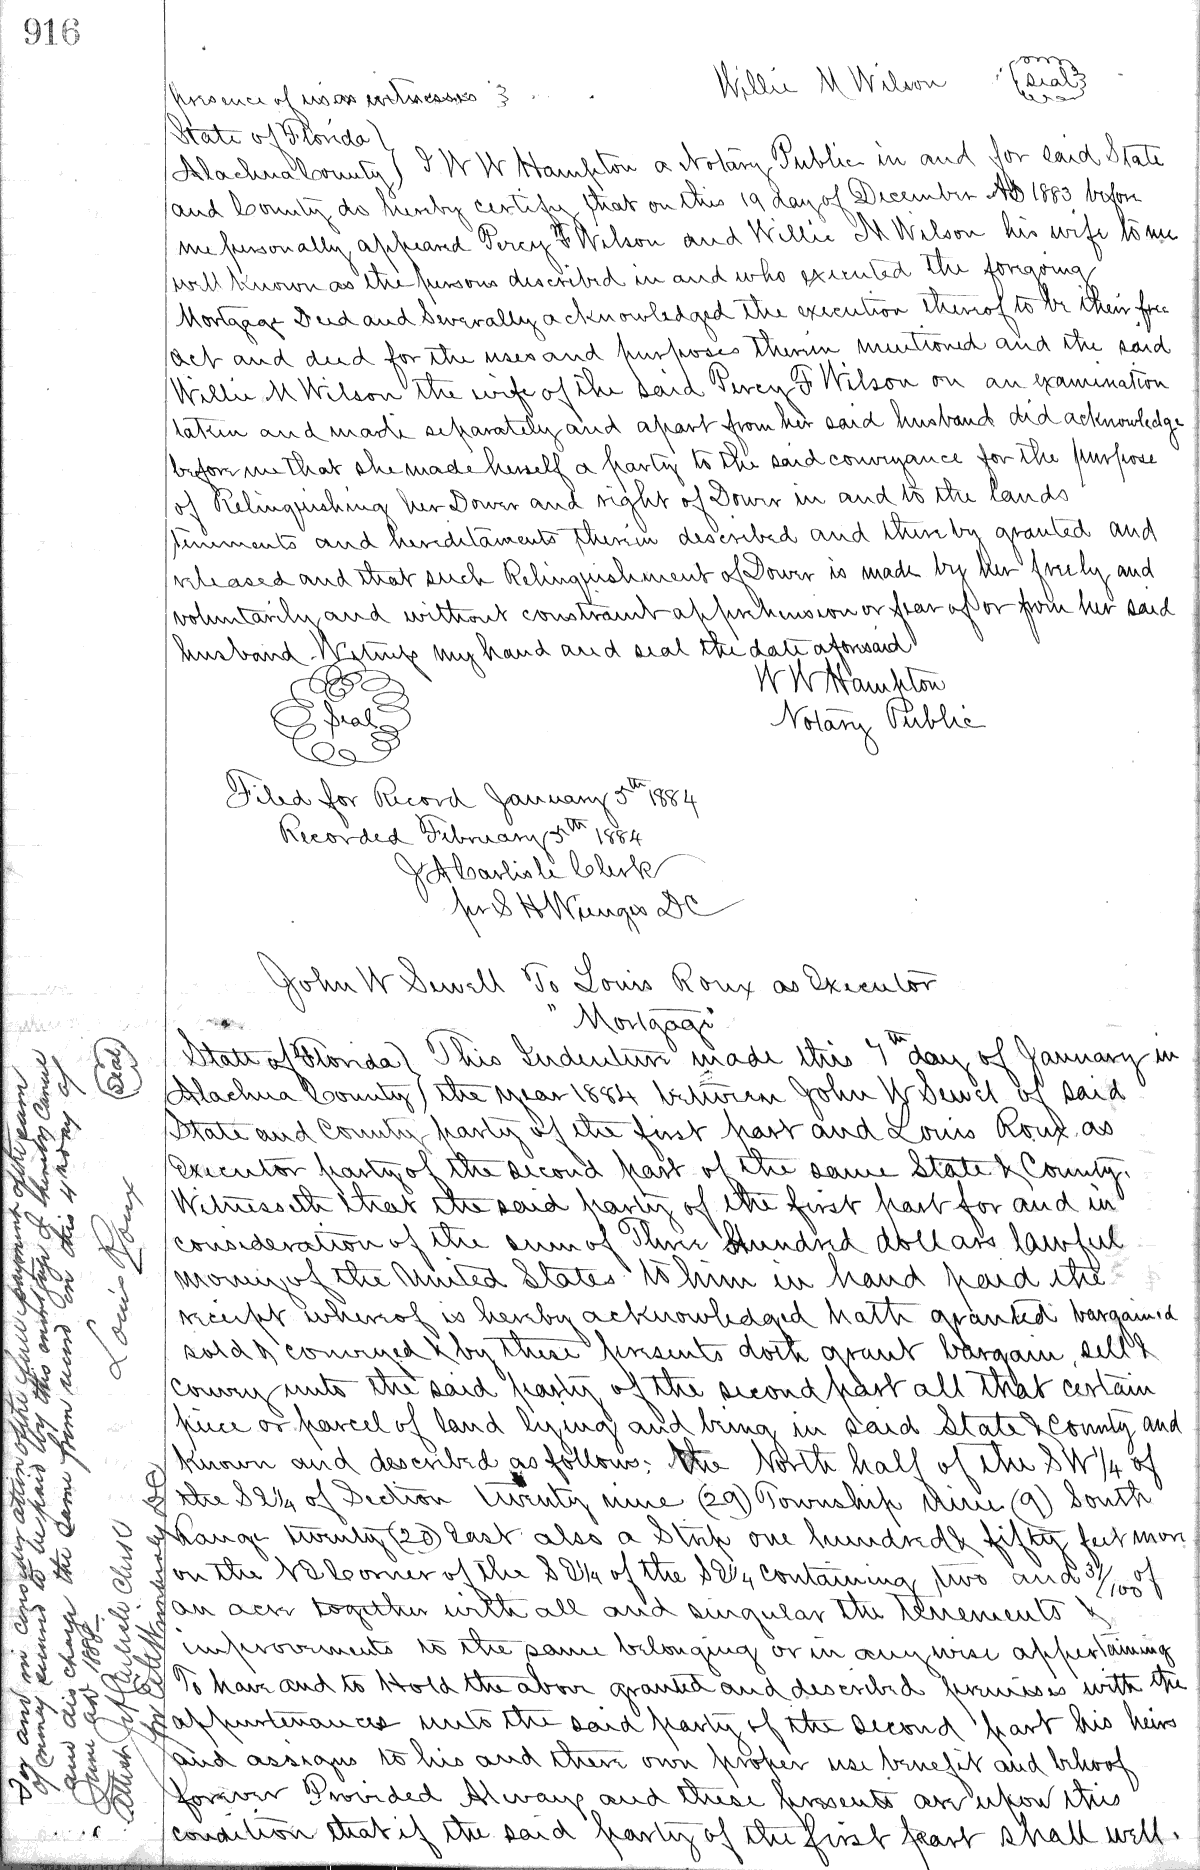 916
Willie M Wilson (Seal)
presence of us as witnesses }
State of Florida )
Alachua County ) I W W Hampton a Notary Public in and for said State
and County do hereby certify that on this 19 day of December AD 1883 before
me personally appeared Percy F Wilson and Willie M Wilson his wife to me
well known as the persons described in and who executed the foregoing
Mortgage Deed and Severally acknowledged the execution thereof to be their free
act and deed for the uses and purposes therein mentioned and the said
Willie M Wilson the wife of the said Percy F Wilson on an examination
taken and made separately and apart from her said husband did acknowledge
before me that she made herself a party to the said conveyance for the purpose
of Relinquishing her Dower and right of Dower in and to the lands
tenements and hereditaments therein described and thereby granted and
released and that such Relinquishment of Dower is made by her freely and
voluntarily and without constraint apprehension or fear of or from her said
husband. Witness my hand and seal the date aforesaid
W W Hampton
Seal
Notary Public
Filed for Record January 5th 1884
Recorded February 5th 1884
J A Carlisle Clerk
per S H Wienges DC
John W Sewell To Louis Roux as Executor
"Mortgage"
State of Florida ) This Indenture made this 7th day of January in
Alachua County ) the year 1884 between John W Sewel of said
State and County party of the first part and Louis Roux as
Executor party of the second part of the same State & County.
Witnesseth that the said party of the first part for and in
consideration of the sum of Three Hundred dollars lawful
money of the United States to him in hand paid the
receipt whereof is hereby acknowledged hath granted bargained
sold & conveyed & by these presents doth grant bargain, sell &
convey unto the said party of the second part all that certain
piece or parcel of land lying and being in said State & County and
known and described as follows: the North half of the SW 1/4 of
the SE 1/4 of Section twenty nine (29) Township Nine (9) South
Range twenty (20) East also a Strip one hundred & fifty feet more
on the NE Corner of the SE 1/4 of the SE 1/4 containing two and 31/100 of
an acre together with all and singular the tenements &
improvements to the same belonging or in any wise appertaining
To have and to Hold the above granted and described premises with the
appurtenances unto the said party of the second part his heirs
and assigns to his and their own proper use benefit and behoof
forever Provided Always and these presents are upon this
condition that if the said party of the first part shall well.
For and in consideration of the full payment of the sum
of money secured to be paid by this mortgage I hereby cancel
and discharge the same from record on this 4th day of
June AD 188
Louis Roux (Seal)
Attest J A Carlisle Clerk